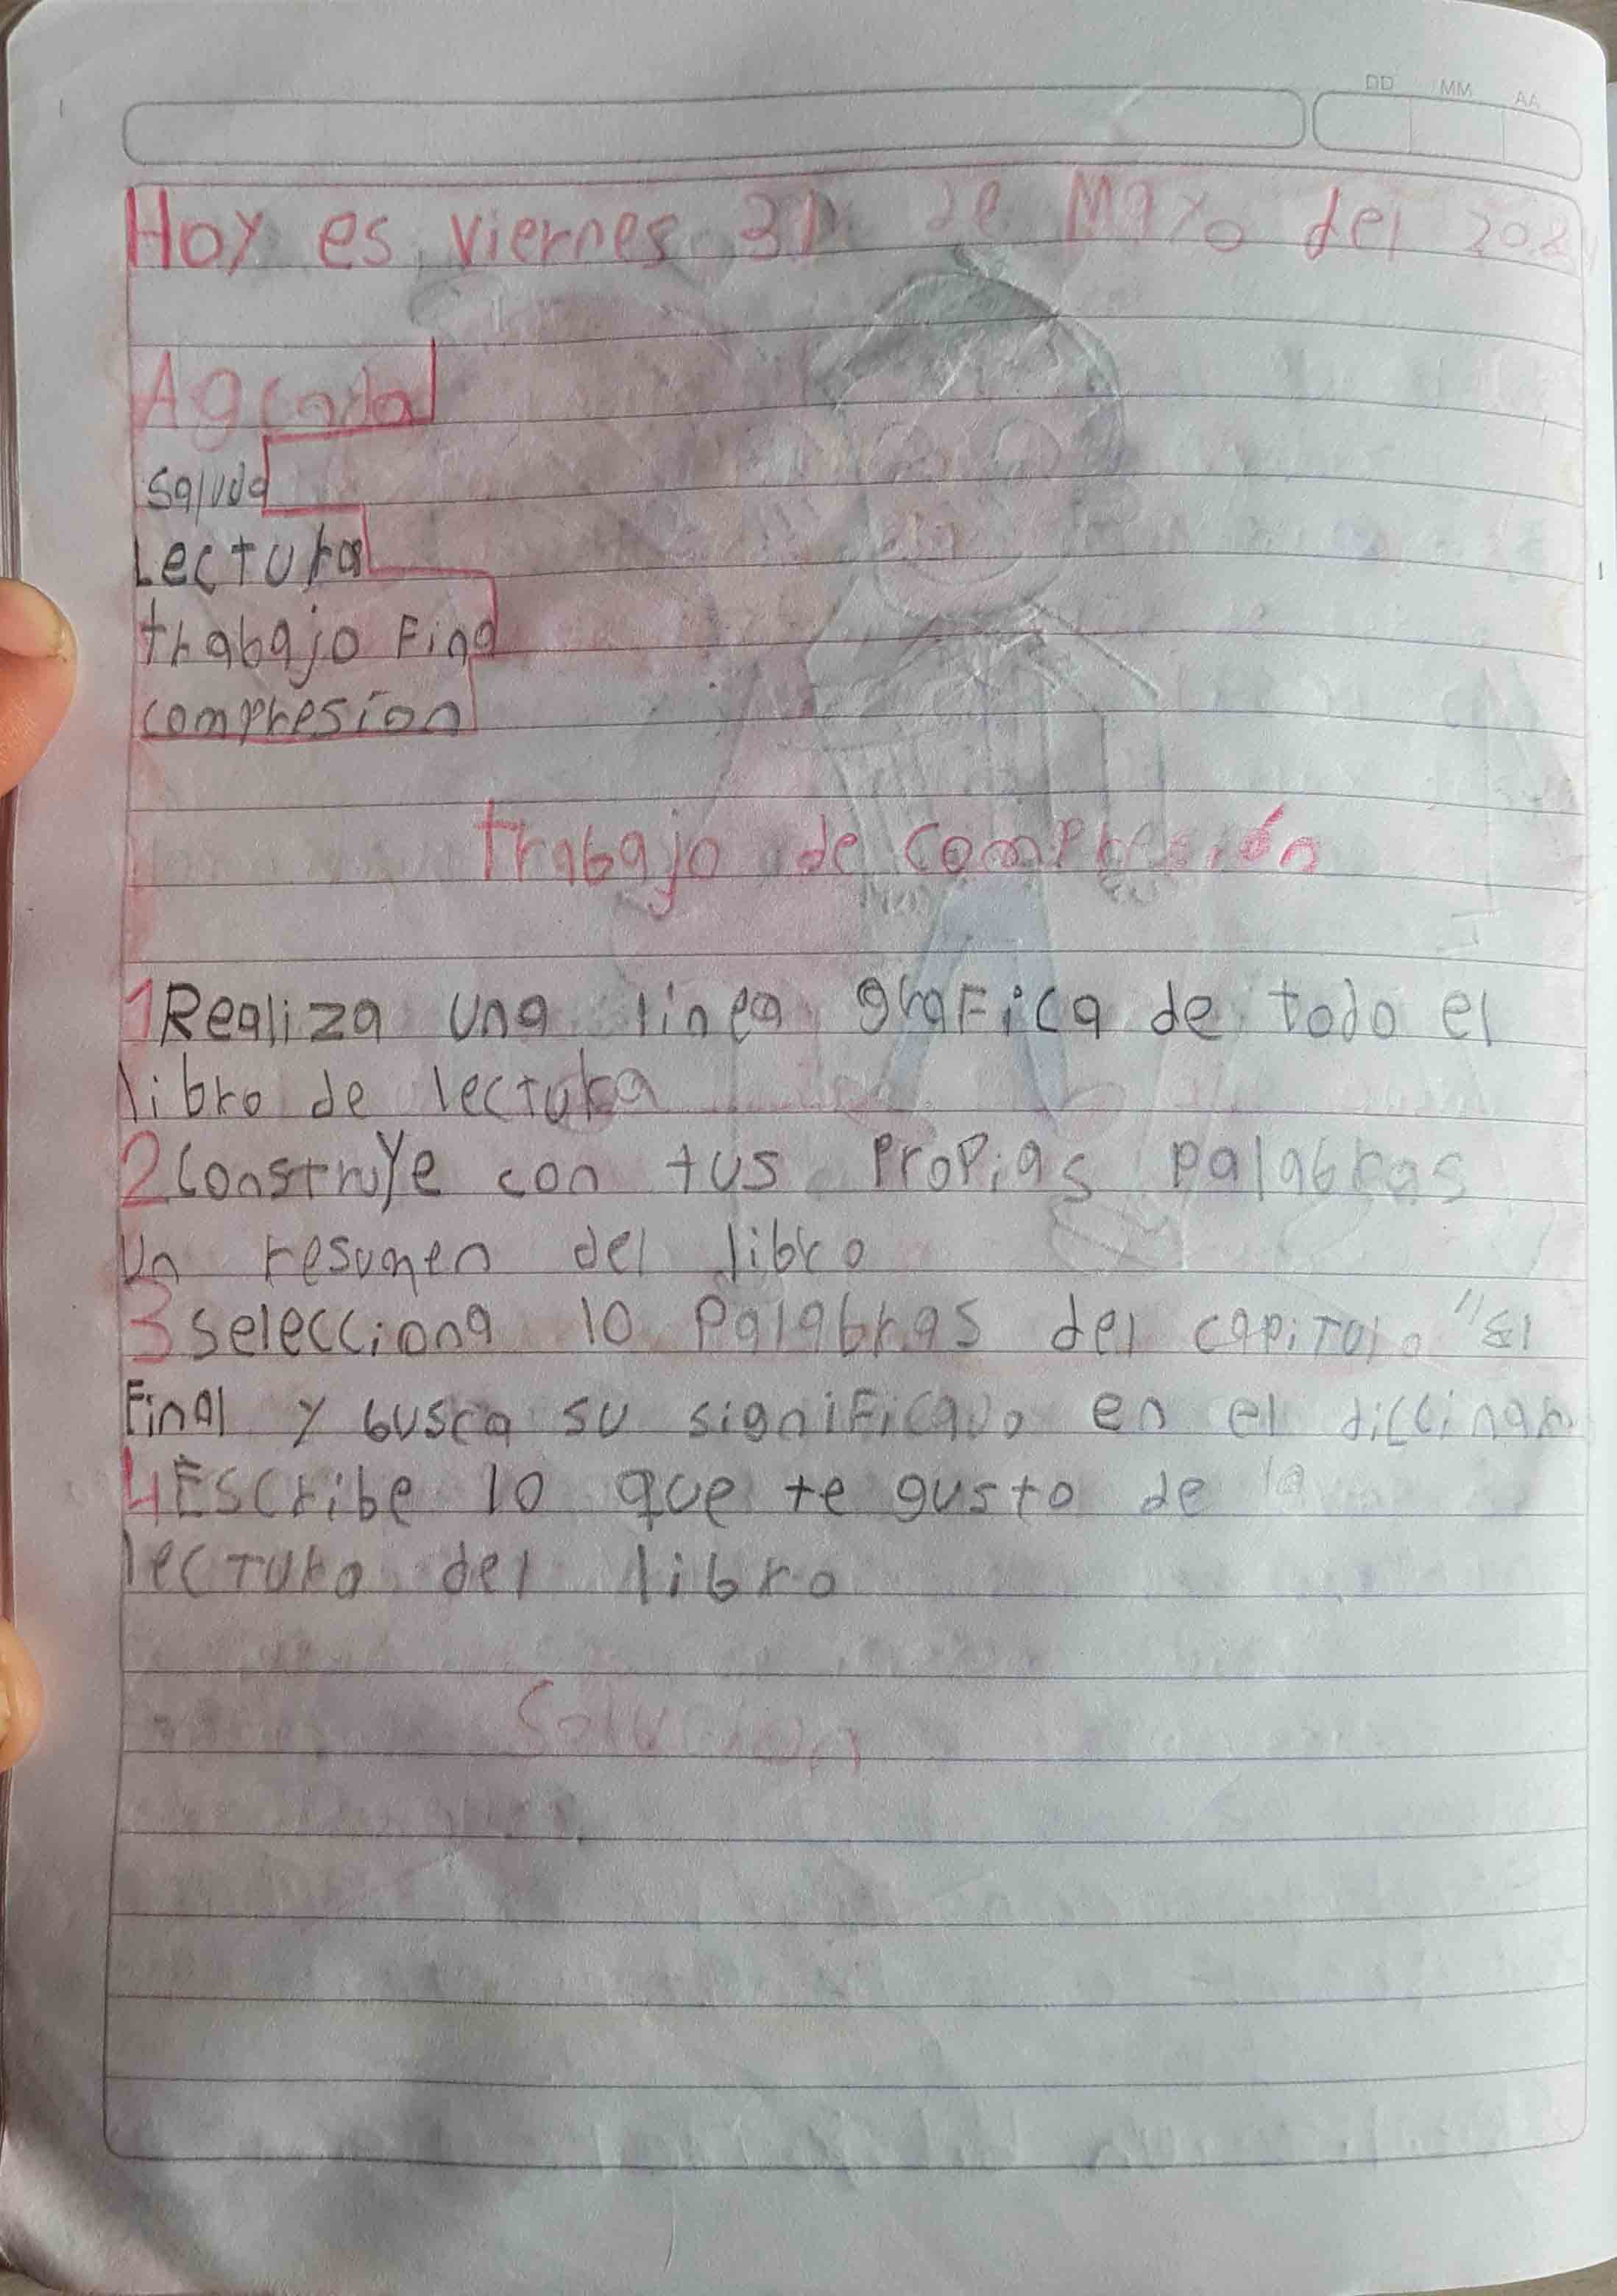 DD MM AA
Hoy es viernes 31 de Mayo del 2024
Agenda
Saludo
Lectura
trabajo Fina
compresion
trabajo de compresión
1 Realiza una linea graFica de todo el
libro de lectura
2 Construye con tus propias palabras
Un resumen del libro
3 selecciona 10 palabras del capitulo "El
Final y busca su signiFicado en el diccinar
4 Escribe lo que te gusto de la
lectura del libro
Solucion